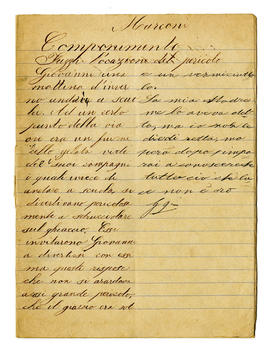 Marconi
Componimento
Fuggi l'occasione del pericolo
Giovanni una
mattina d'inver
no andava a scuo
la. Ad un certo
punto della via
ove era un fiume
vide gelato vide
de' suoi compagni
i quali invece di
andare a scuola si
divertivano pericolosa
mente a sdrucciolare
sul ghiaccio. Essi
invitarono Giovanni
a divertirsi con essi
ma questi rispose
che non si azzardava
a sì grande pericolo,
che il ghiaccio era sot
La mia Madre
me lo aveva det
to, ma io non le
diedi retta, ma
però dopo impa
rai a conoscere che
tutto ciò che lu
ce non è oro